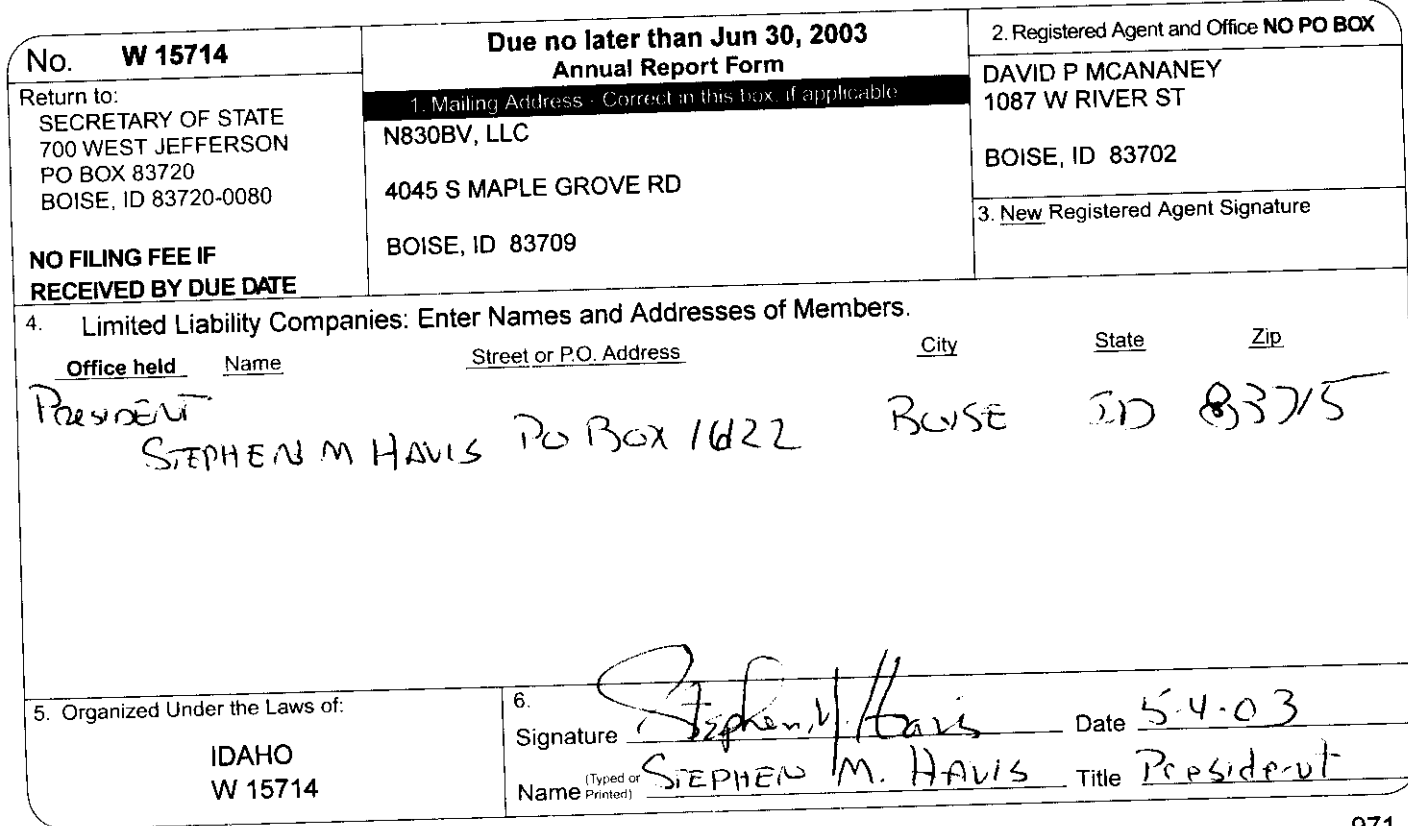 No. W 15714
Return to:
SECRETARY OF STATE
700 WEST JEFFERSON
PO BOX 83720
BOISE, ID 83720-0080
NO FILING FEE IF
RECEIVED BY DUE DATE
Due no later than Jun 30, 2003
Annual Report Form
1. Mailing Address - Correct in this box, if applicable
N830BV, LLC
4045 S MAPLE GROVE RD
BOISE, ID 83709
2. Registered Agent and Office NO PO BOX
DAVID P MCANANEY
1087 W RIVER ST
BOISE, ID 83702
3. New Registered Agent Signature
4. Limited Liability Companies: Enter Names and Addresses of Members.
Office held Name Street or P.O. Address City State Zip
PRESIDENT
STEPHEN M HAVIS PO BOX 1622 BOISE ID 83715
5. Organized Under the Laws of:
IDAHO
W 15714
6.
Signature Stephen M. Havis Date 5-4-03
Name (Typed or Printed) STEPHEN M. HAVIS Title President
971